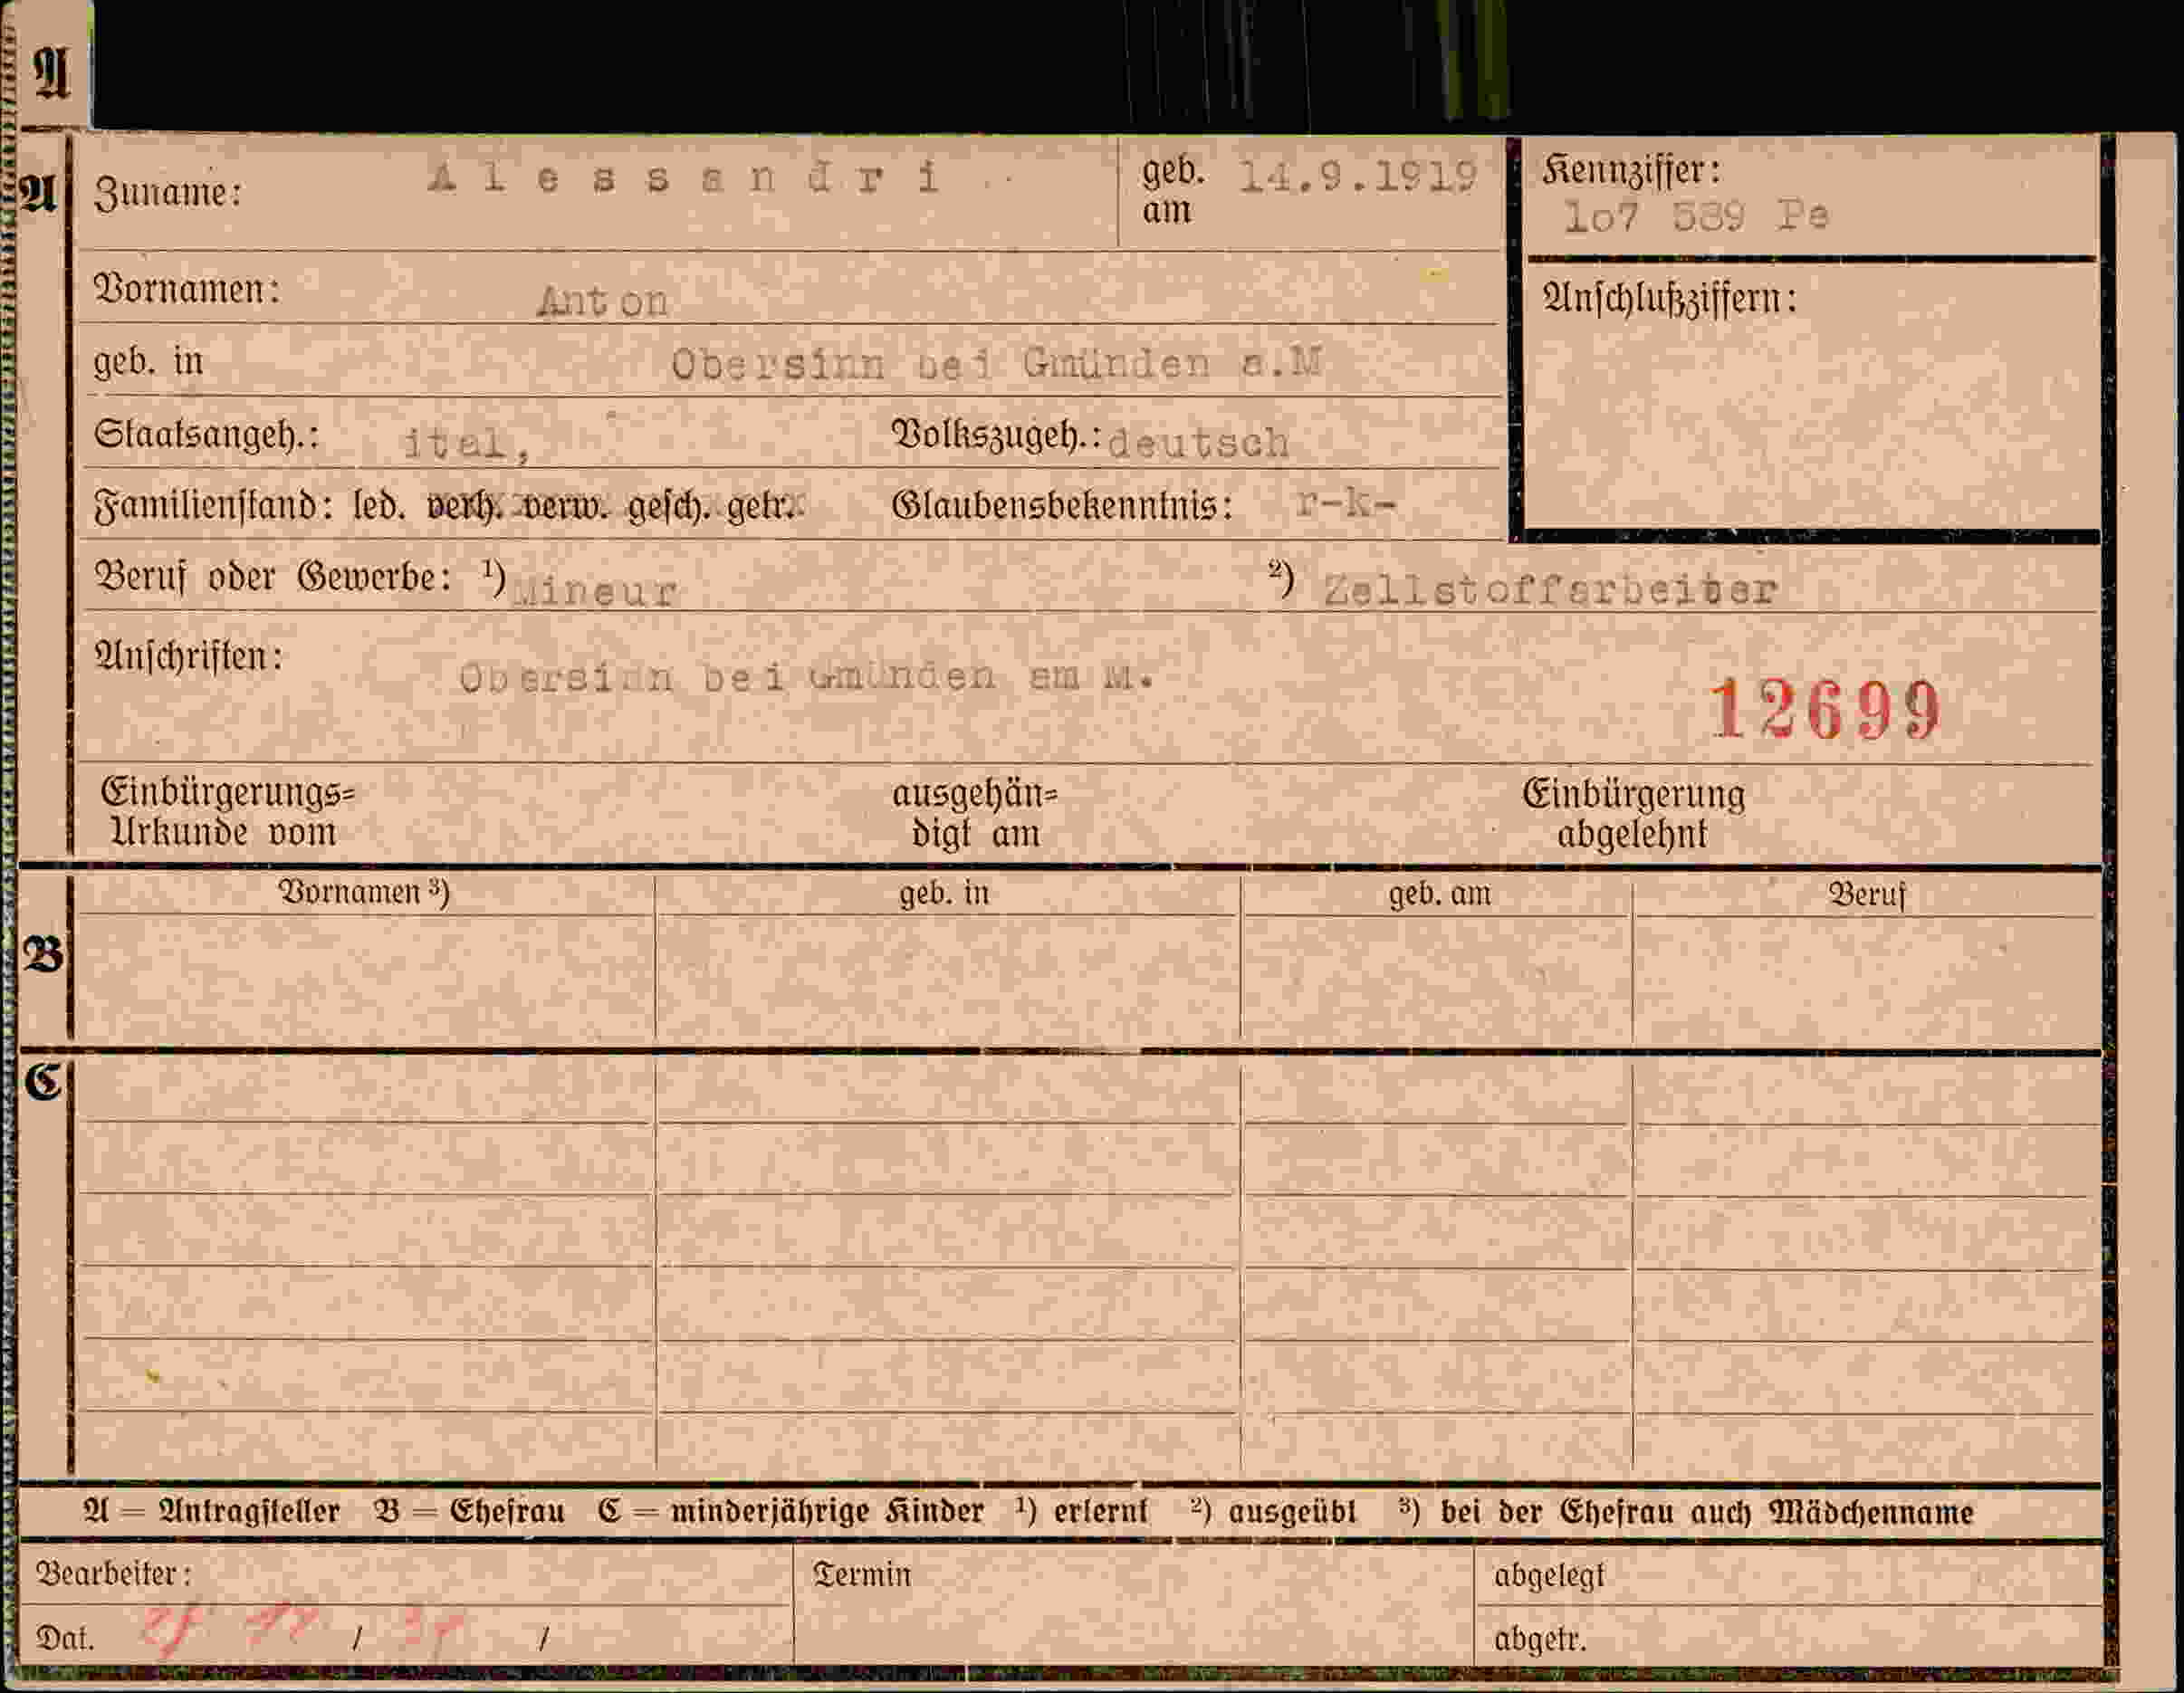 A
A Zuname: Alessandri geb. am 14.9.1919 Kennziffer:
1o7 589 Pe
Vornamen: Anton Anschlußziffern:
geb. in Obersinn bei Gmünden a.M
Staatsangeh.: ital, Volkszugeh.: deutsch
Familienstand: led. verh. verw. gesch. getr. Glaubensbekenntnis: r-k-
Beruf oder Gewerbe: ¹) Mineur ²) Zellstoffarbeiter
Anschriften: Obersinn bei Gmünden am M.
12699
Einbürgerungs= ausgehän= Einbürgerung
Urkunde vom digt am abgelehnt
Vornamen ³) geb. in geb. am Beruf
B
C
A = Antragsteller B = Ehefrau C = minderjährige Kinder ¹) erlernt ²) ausgeübt ³) bei der Ehefrau auch Mädchenname
Bearbeiter: Termin abgelegt
Dat. / / abgetr.